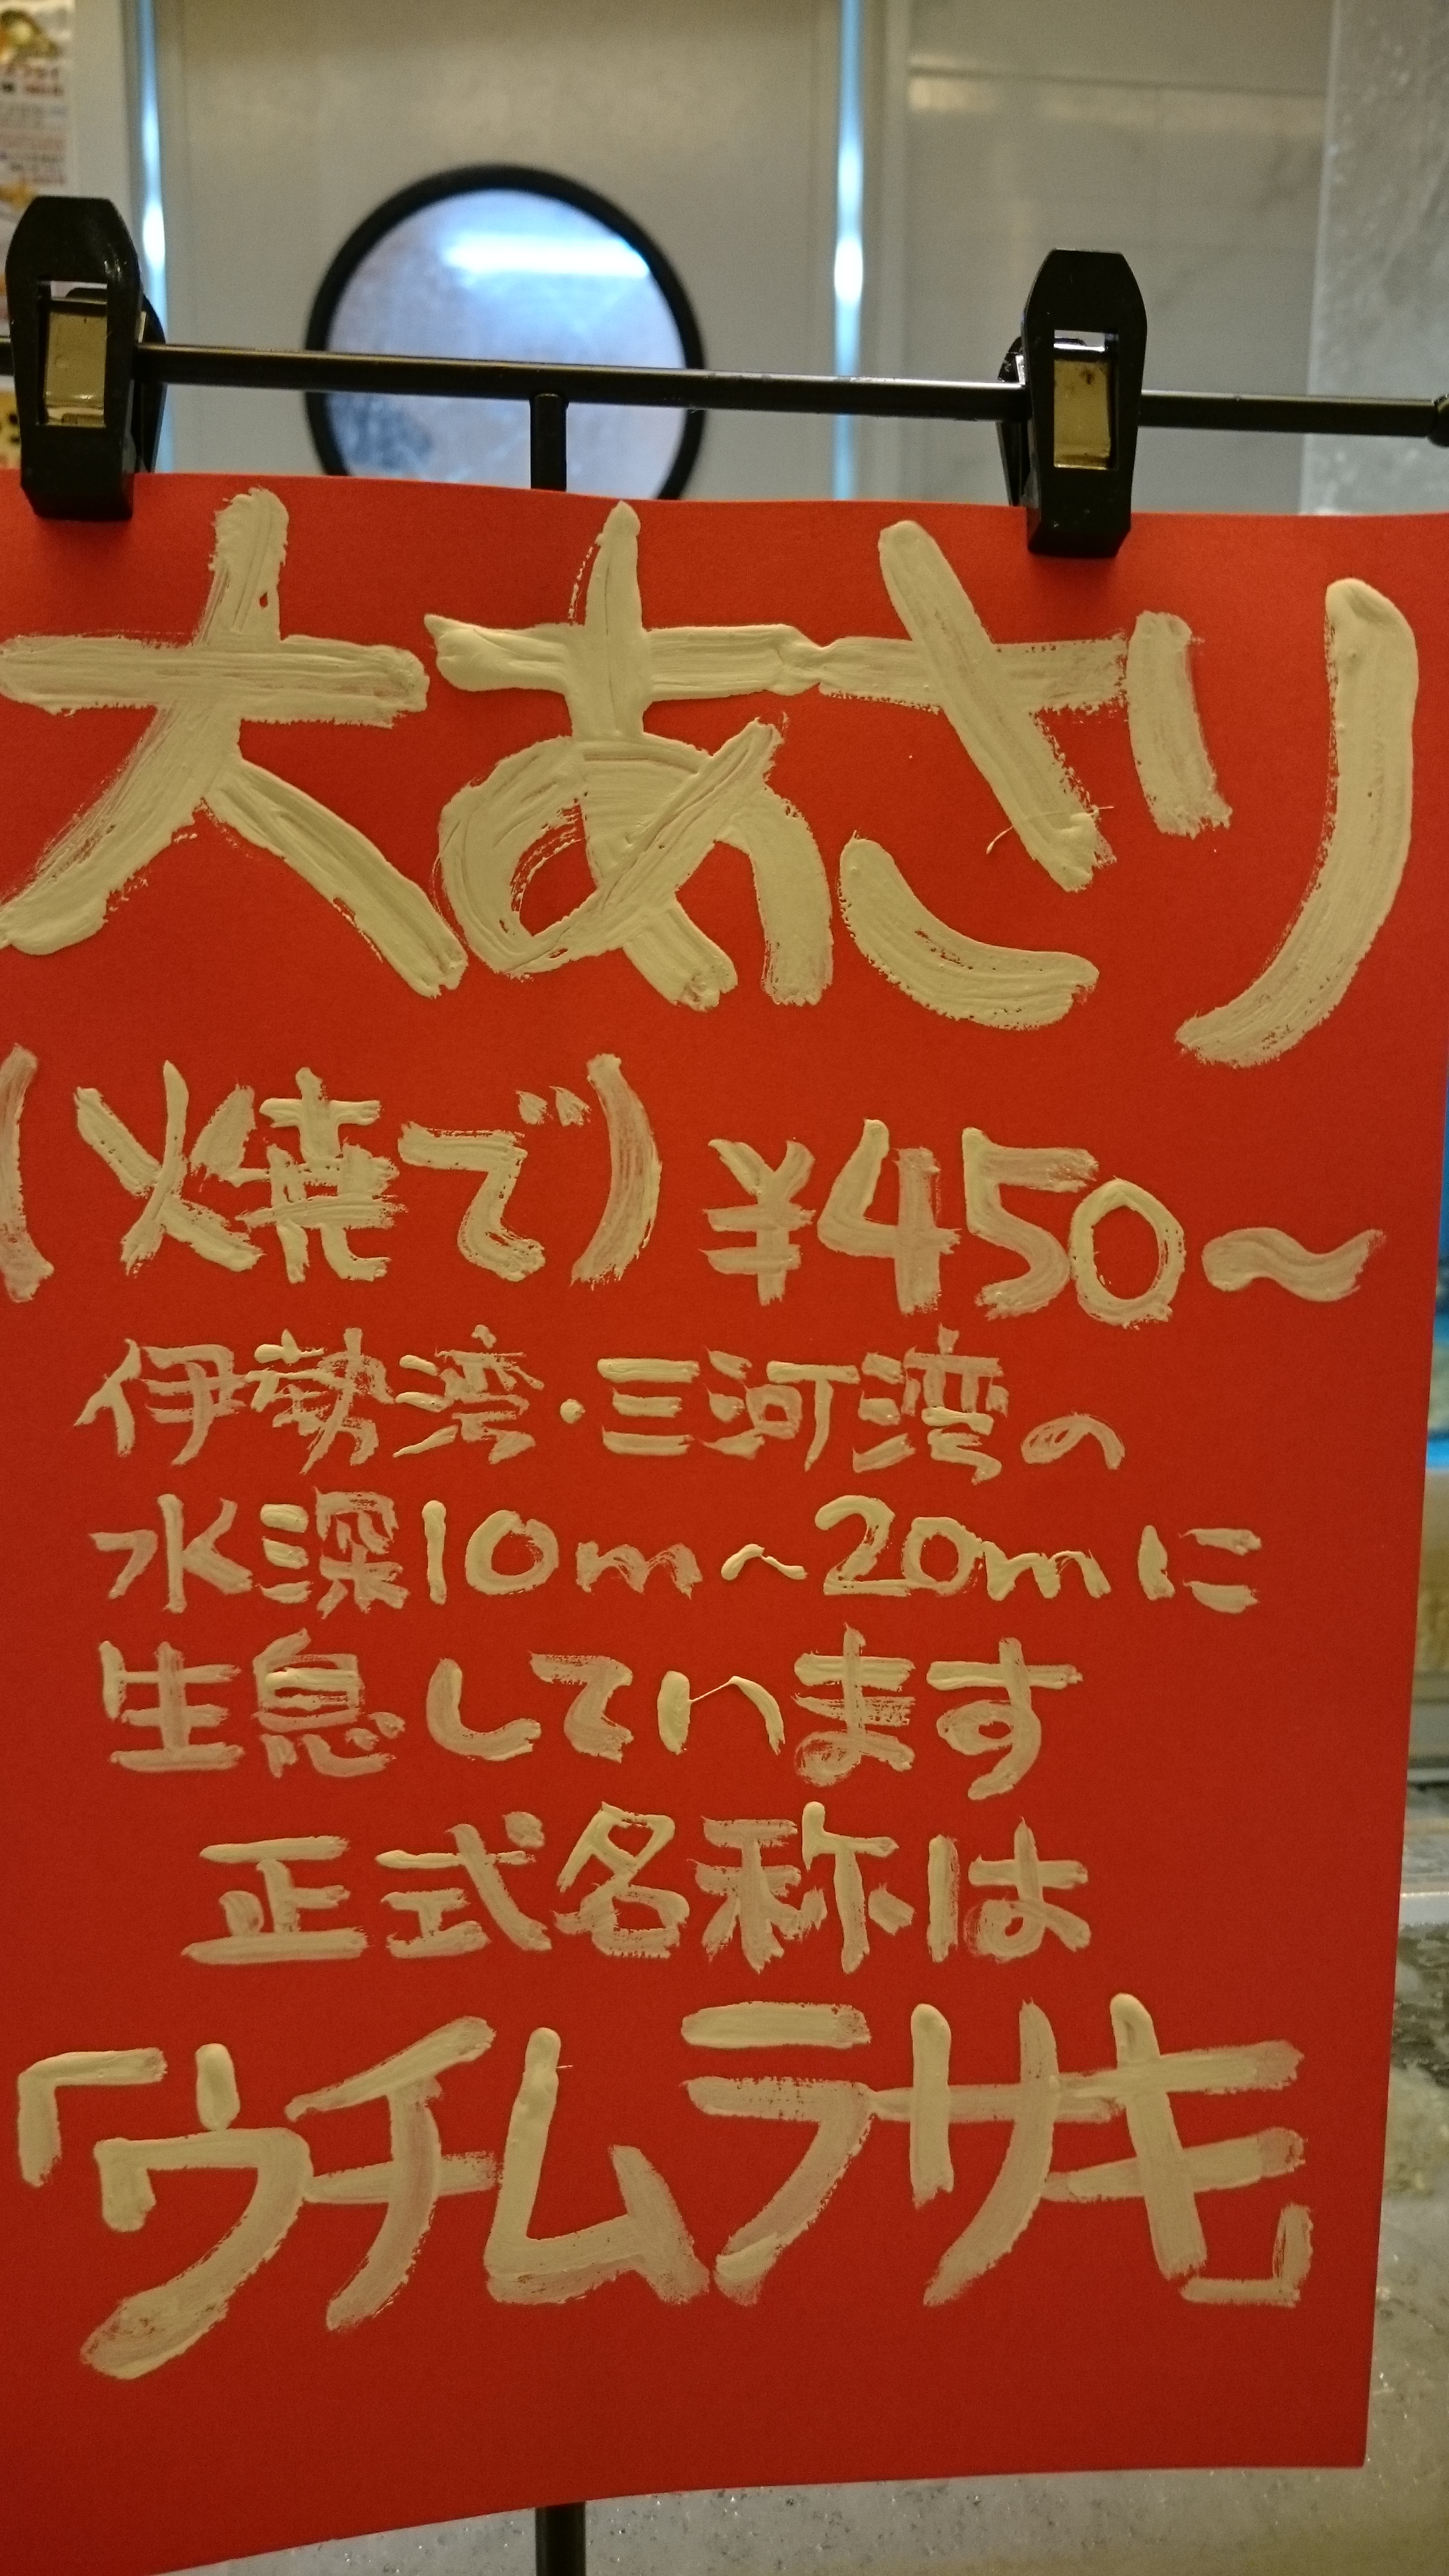 大あさり
(焼で)¥450～
伊勢湾・三河湾の
水深10m～20mに
生息しています
正式名称は
「ウチムラサキ」